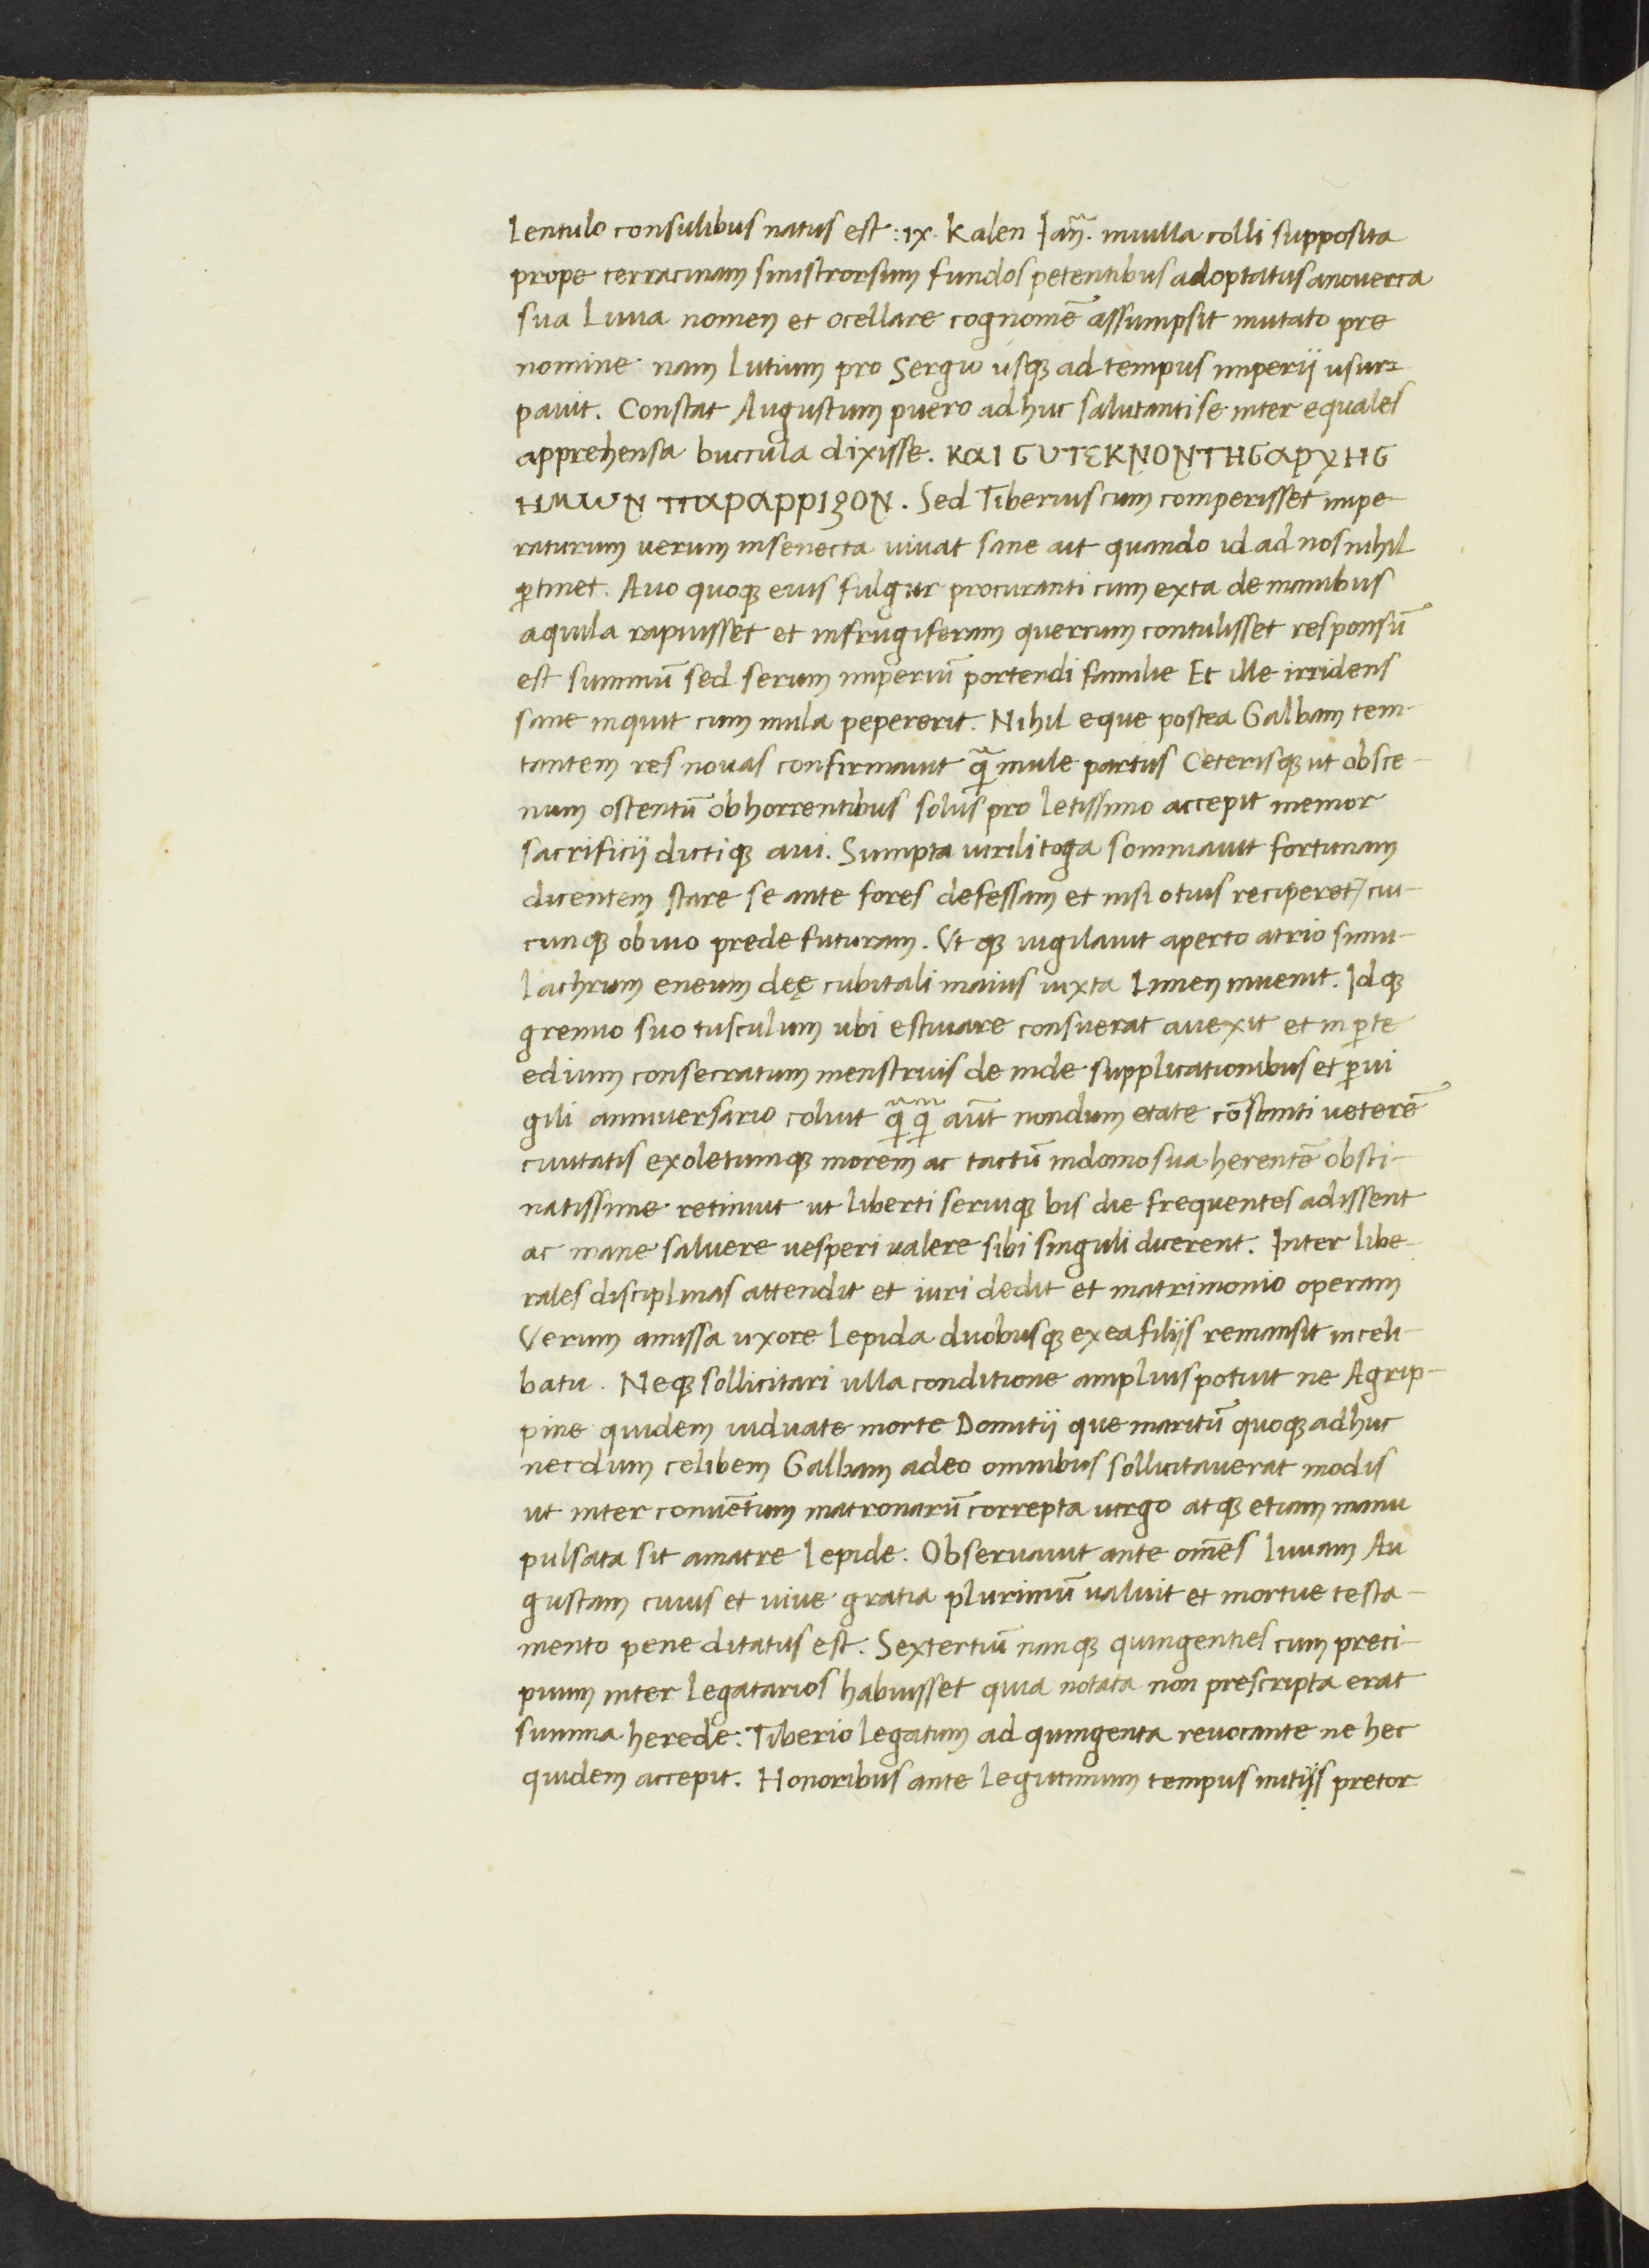 Lentulo consulibus natus est : ix. Kalen Iañ. inuilla colli supposita
prope terracinam sinistrorsum fundos petentibus adoptatus anouerca
sua Liuia nomen et ocellare cognomē assumpsit mutato pre
nomine nam Lutium pro Sergio usq; ad tempus imperij usur-
pauit. Constat Augustum puero adhuc salutanti se inter equales
apprehensa buccula dixisse. ΚΑΙ CΥΤΕΚΝΟΝΤΗCΑΡΧΗC
ΗΜωΝ ΠΑΡΑΡΡΙΖΟΝ. Sed Tiberius cum comperisset impe-
raturum uerum insenecta uiuat sane ait quando id ad nos nihil
ꝑtinet. Auo quoq; eius fulgur procuranti cum exta de manibus
aquila rapuisset et infrugiferam quercum contulisset responsū
est summū sed serum imperiū portendi familie Et ille irridens
sane inquit cum mula pepererit. Nihil eque postea Galbam tem-
tantem res nouas confirmauit q̄ mule partus Ceterisq; ut obsce-
num ostentū obhorrentibus solus pro letissimo accepit memor
sacrificij dictiq; aui. Sumpta uirili toga somniauit fortunam
dicentem stare se ante fores defessam et nisi otius reciperet/cui-
cunq; obuio prede futuram. Ut q; uigilauit aperto atrio simu-
lachrum eneum deę cubitali maius iuxta Limen inuenit. Idq;
gremio suo tusculum ubi estiuare consuerat auexit et in ꝑte
edium consecratum menstruis de inde supplicationibus et ꝑui
gili anniuersario coluit q̄ q̄ aūt nondum etate cōstanti ueterē
ciuitatis exoletumq; morem ac tactū indomo sua herentē obsti-
natissime retinuit ut liberti seruiq; bis die frequentes adissent
ac mane saluere uesperi ualere sibi singuli dicerent. Inter libe-
rales disciplinas attendit et iuri dedit et matrimonio operam
Verum amissa uxore Lepida duobusq; exea filijs remansit inceli-
batu. Neq; sollicitari ulla conditione amplius potuit ne Agrip-
pine quidem uiduate morte Domitij que maritū quoq; adhuc
necdum celibem Galbam adeo omnibus sollicitauerat modis
ut inter conuētum matronarū correpta utrgo atq; etiam manu
pulsata sit amatre Lepide. Obseruauit ante om̄es Liuiam Au
gustam cuius et uiue gratia plurimū ualuit et mortue testa-
mento pene ditatus est. Sextertiū nanq; quingenties cum preci-
puum inter Legatarios habuisset quia notata non prescripta erat
summa herede: Tiberio Legatum ad quingenta reuocante ne hec
quidem accepit. Honoribus ante Legitimum tempus initijs pretor